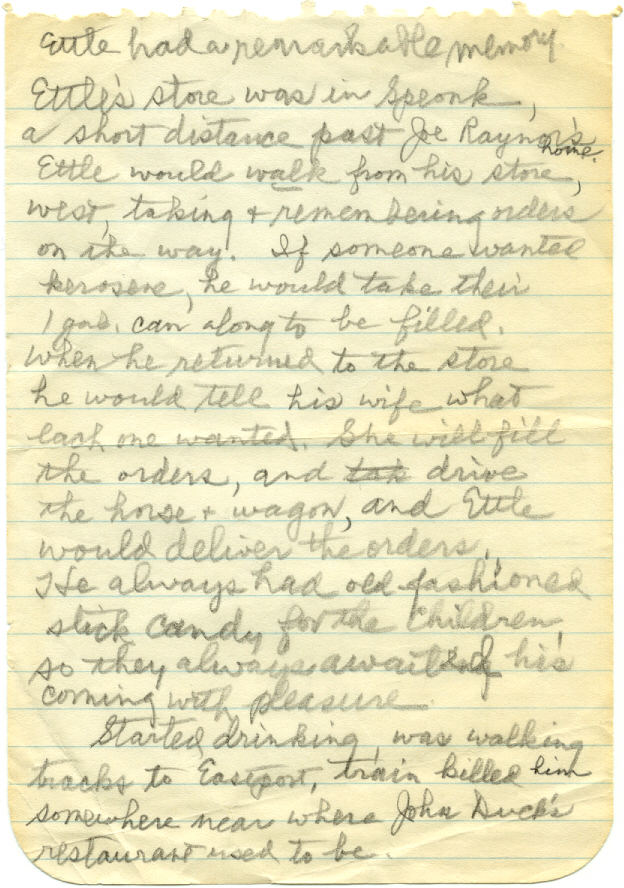 Ettle had a remarkable memory
Ettle's store was in Speonk,
a short distance past Joe Raynor's
home.
Ettle would walk from his store,
west, taking + remembering orders
on the way. If someone wanted
kerosene, he would take their
1 gal. can along to be filled.
When he returned to the store
he would tell his wife what
each one wanted. She will fill
the orders, and tak drive
the horse + wagon, and Ettle
would deliver the orders.
He always had old fashioned
stick candy for the children,
so they always awaited his
coming with pleasure
Started drinking, was walking
tracks to Eastport, train killed him
somewhere near where John Duck's
restaurant used to be.